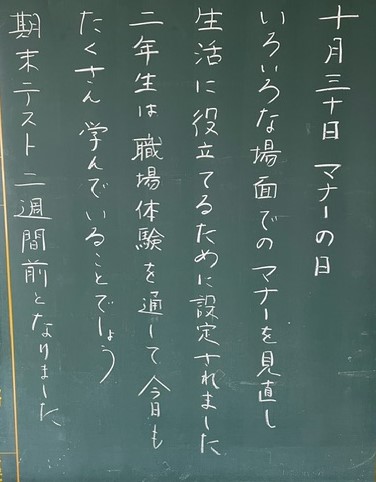 十月三十日 マナーの日
いろいろな場面でのマナーを見直し
生活に役立てるために設定されました
二年生は職場体験を通して今日も
たくさん学んでいることでしょう
期末テスト二週間前となりました